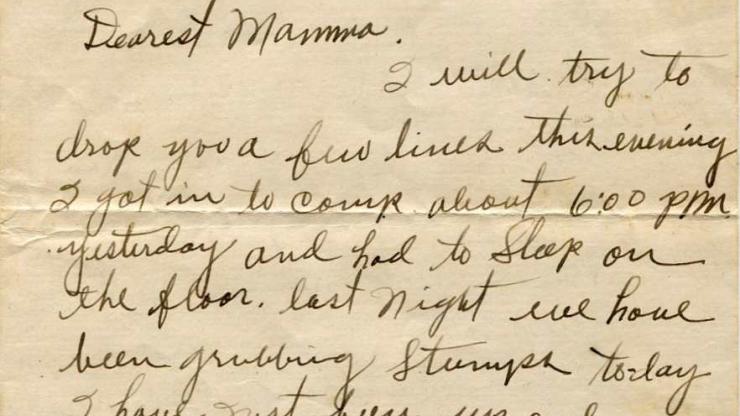 Dearest Mamma.
I will try to
drop you a few lines this evening
I got in to camp about 6:00 P.M.
yesterday and had to sleep on
the floor. last night we have
been grubbing stumps to-day
I have just